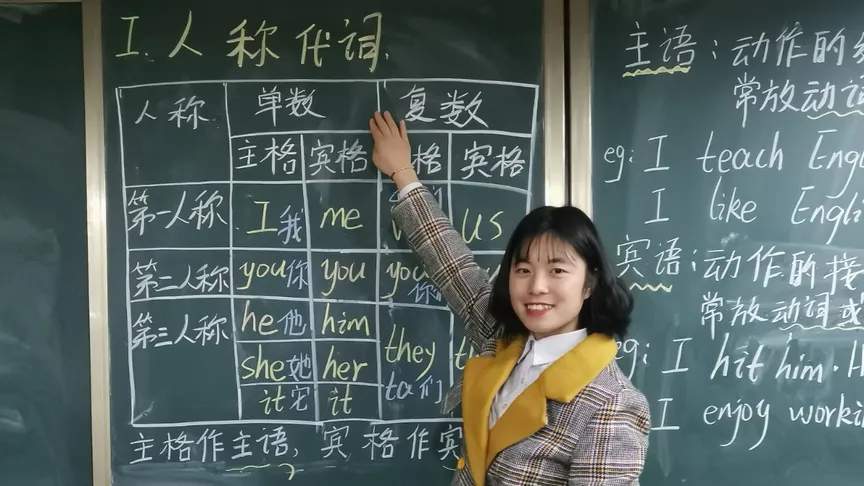 I. 人称代词.
人称 单数 复数
主格 宾格 格 宾格
第一人称 I我 me us
第二人称 you你 you you你们
第三人称 he他 him
she她 her they
it它 it ta们
主格作主语, 宾格作宾
主语：动作的
常放动词
eg: I teach Engl
I like Engli
宾语：动作的接
常放动词或
eg: I hit him. H
I enjoy workin